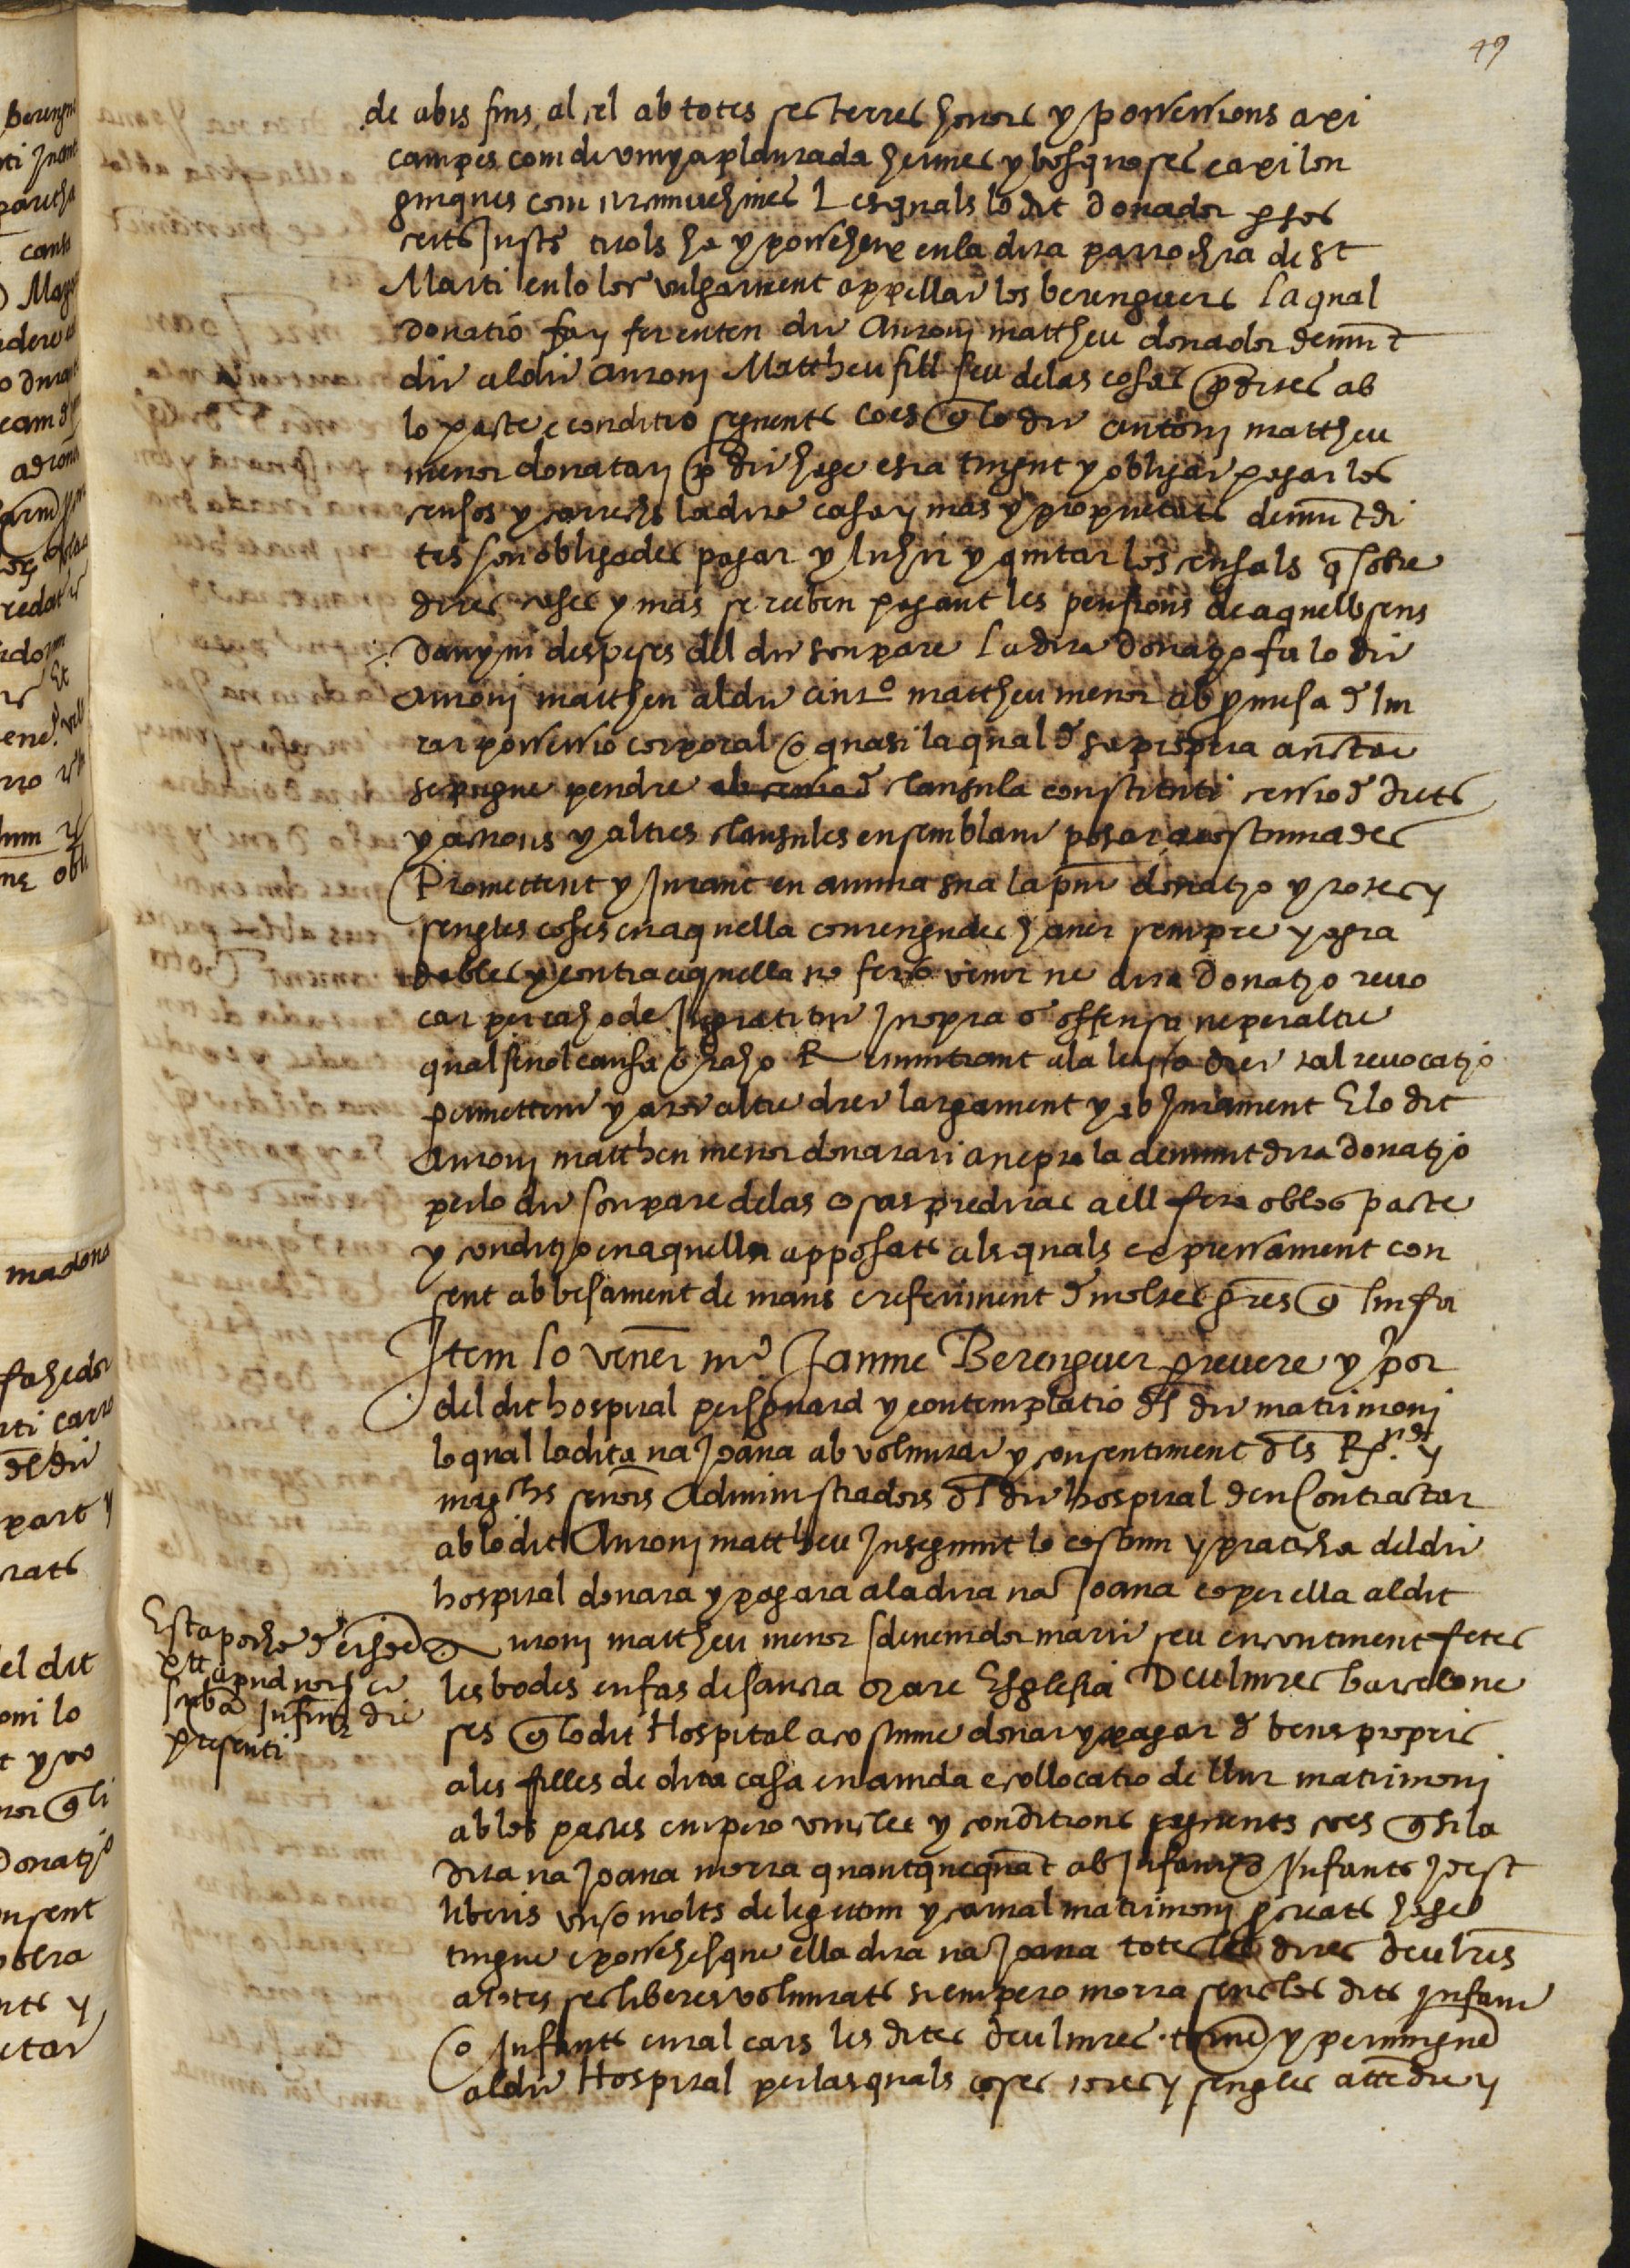 49
de abis fins al cel ab totes ses terres honors y possessions axi
campes com de vinya plantada hermes y bosquoses e axi lon
ginques com circumvehines Les quals lo dit donador per sos
certs justs titols ha y possehex en la dita parrochia de St
Marti en lo loc vulgarment appellat los berenguers La qual
donatió fa y fer enten dit Antoni mattheu donador demunt
dit al dit Antoni Mattheu fill seu de las cosas predites ab
lo pacte e conditio seguents ço es que lo dit Antoni mattheu
menor donatari predit hage e sia tingut y obligat pagar los
censos y carrechs la dita casa y mas y proprietats demunt di
tes son obligades pagar y luhir y quitar los censals que sobre
dites cases y mas se reeben pagant les pensions de aquells sens
dany ni despeses del dit son pare La dita donatio fa lo dit
Antoni mattheu al dit Anto mattheu menor ab promesa de liu
rar possessio corporal o quasi la qual de sa propria auctat
se pugue pendre ab cessio de clausula constituti cessio de drets
y actions y altres clausules en semblant posar acostumades
Promettent y jurant en anima sua la pnt donatio y totes y
sengles coses en aquella contengudes haver sempre per agra
dables y contra aquella no fer o venir ne dita donatio revo
car per caho de Ingratitut Inopia o offensa ne per altre
qualsevol causa o raho Renuntiant a la ley o dret tal revocatio
permettent y a tot altre dret largament y ab Jurament E lo dit
Antoni mattheu menor donatari accepta la demunt dita donatio
per lo dit son pare de las cosas preditas a ell feta ab los pacte
y conditio en aquella apposats als quals expressament con
sent ab besament de mans e referiment de moltes gres que lin fa
Item lo vener mr Jaume Berenguer prevere y prior
del dit hospital per sguard y contemplatio del dit matrimoni
lo qual la dita na Joana ab voluntat y consentiment dels Rnts y
magchs senors Administradors del dit hospital deu Contractar
ab lo dit Antoni mattheu Inseguint lo costum y praticha del dit
hospital donara y pagara a la dita na Joana e o per ella al dit
Antoni mattheu menor sdevenidor marit seu encontinent fetes
les bodes en fas de sancta mare Esglesia Deu liures barcelone
ses que lo dit Hospital acostuma donar y pagar de bens propris
a les filles de dita casa en aiuda e collocatio de llur matrimoni
ab los pactes empero vincles y conditions seguents ço es que si la
dita na Joana morra quantquequant ab Infant o Infants id est
liberis vn o molts de legittim y carnal matrimoni procreats hage
tingue e possehesque ella dita na Joana totes les dites deu lrs
a totes ses liberes voluntats si empero morra sens los dits Infant
o Infants en tal cars les dites deu lliures torne y pertangue
al dit Hospital per las quals coses totes y sengles attedre y
Esta
apud
presenti